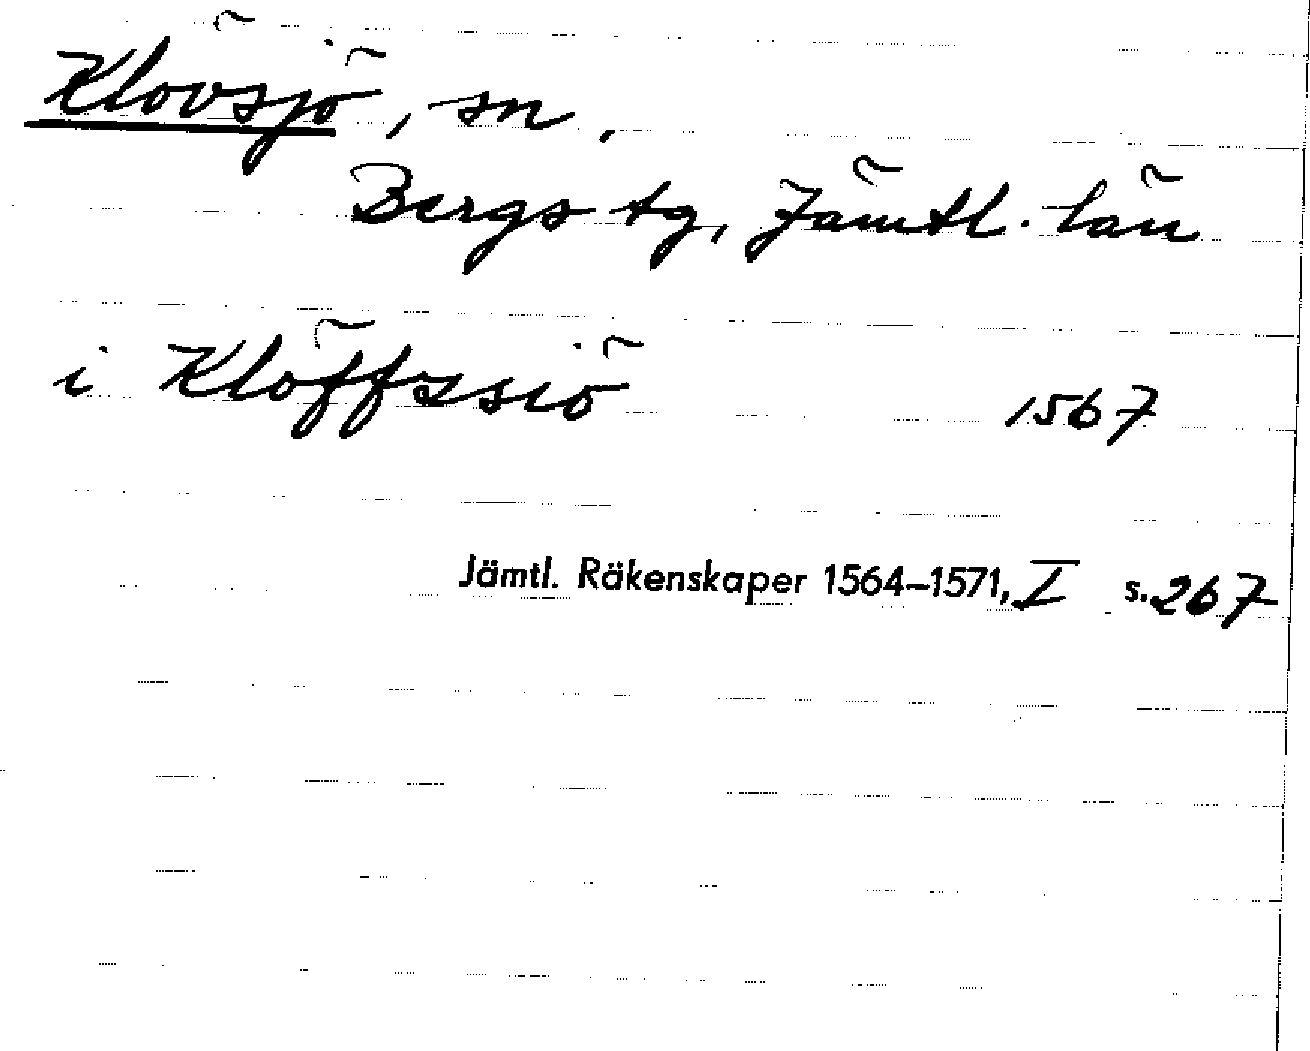 Klövsjö, sn,
Bergs tg, Jämtl. län
i Klöffzsiö 1567
Jämtl. Räkenskaper 1564–1571, I s. 267